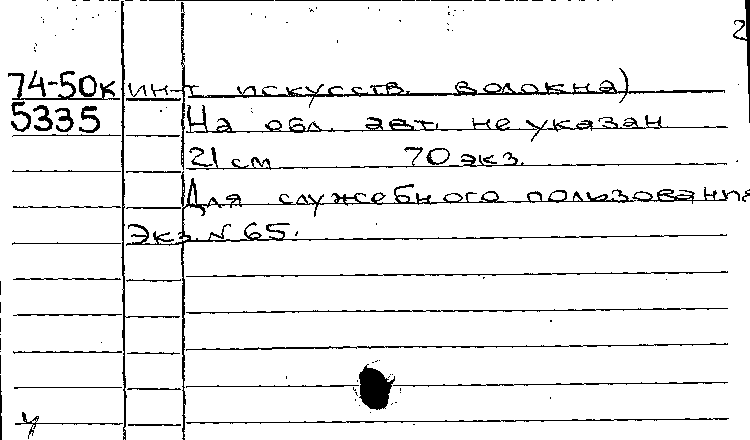 2
74-50к ин-т искусств. волокна)
5335 На обл. авт. не указан
21 см 70 экз.
Для служебного пользования
Экз. N 65.